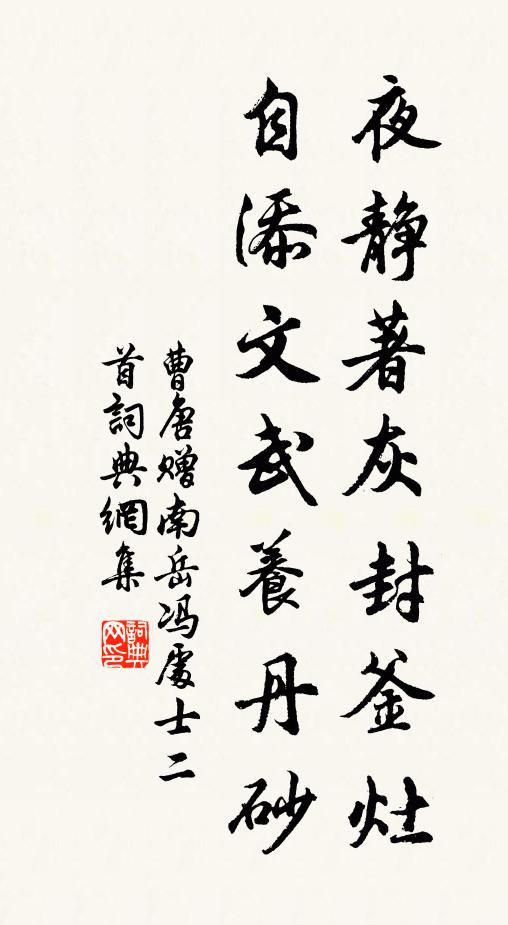 夜静著灰封釜灶
自添文武養丹砂
曹唐贈南岳冯處士二
首詞典網集
詞典
网印